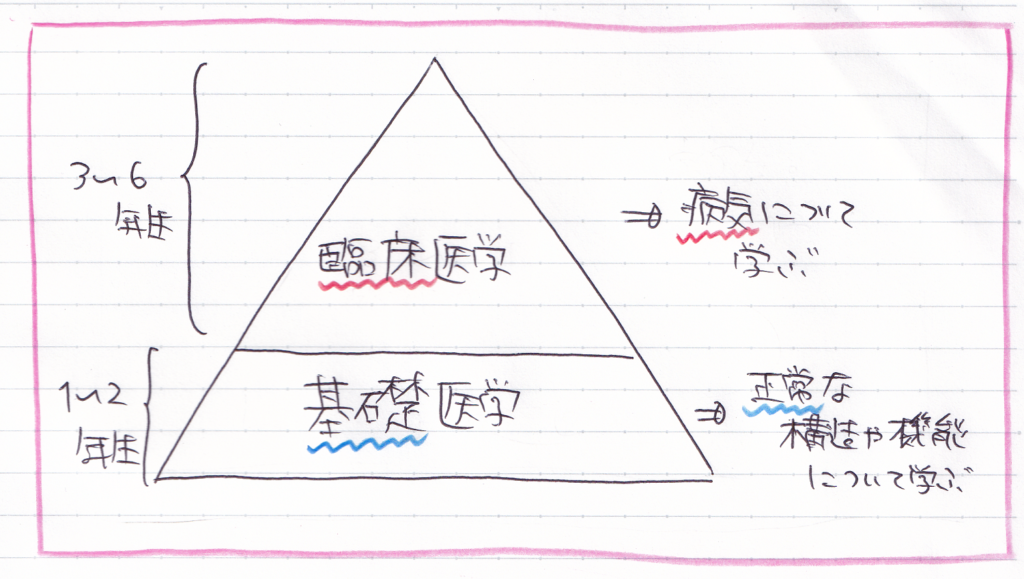 3~6
年生
臨床医学
⇒ 病気について
学ぶ
1~2
年生
基礎医学
⇒ 正常な
構造や機能
について学ぶ